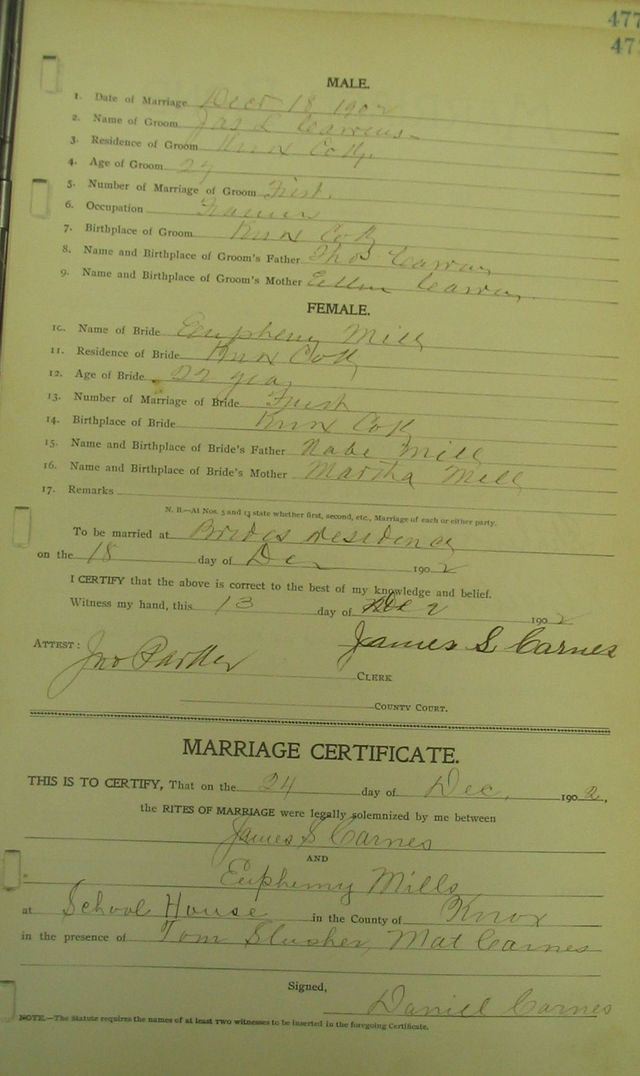 477
47
MALE.
1. Date of Marriage Decr 18 1902
2. Name of Groom Jas L
3. Residence of Groom Knox Co Ky.
4. Age of Groom
5. Number of Marriage of Groom First.
6. Occupation Farmer
7. Birthplace of Groom Knox Co Ky
8. Name and Birthplace of Groom's Father Thos
9. Name and Birthplace of Groom's Mother Ellen
FEMALE.
10. Name of Bride Euphemy Mills
11. Residence of Bride Knox Co Ky
12. Age of Bride 22 years
13. Number of Marriage of Bride First
14. Birthplace of Bride Knox Co Ky
15. Name and Birthplace of Bride's Father Nabe Mills
16. Name and Birthplace of Bride's Mother Martha Mills
17. Remarks
N. B.—At Nos. 5 and 13 state whether first, second, etc., Marriage of each or either party.
To be married at Brides residence
on the 18 day of Dec 1902
I CERTIFY that the above is correct to the best of my knowledge and belief.
Witness my hand, this 13 day of Dec 1902
James S Carnes
ATTEST: Jno Parker
CLERK
COUNTY COURT.
MARRIAGE CERTIFICATE.
THIS IS TO CERTIFY, That on the 24 day of Dec, 1902,
the RITES OF MARRIAGE were legally solemnized by me between
James S Carnes
AND
Euphemy Mills
at School House in the County of Knox
in the presence of Tom Slusher, Mat Carnes
Signed,
Daniel Carnes
NOTE.—The Statute requires the names of at least TWO witnesses to be inserted in the foregoing Certificate.